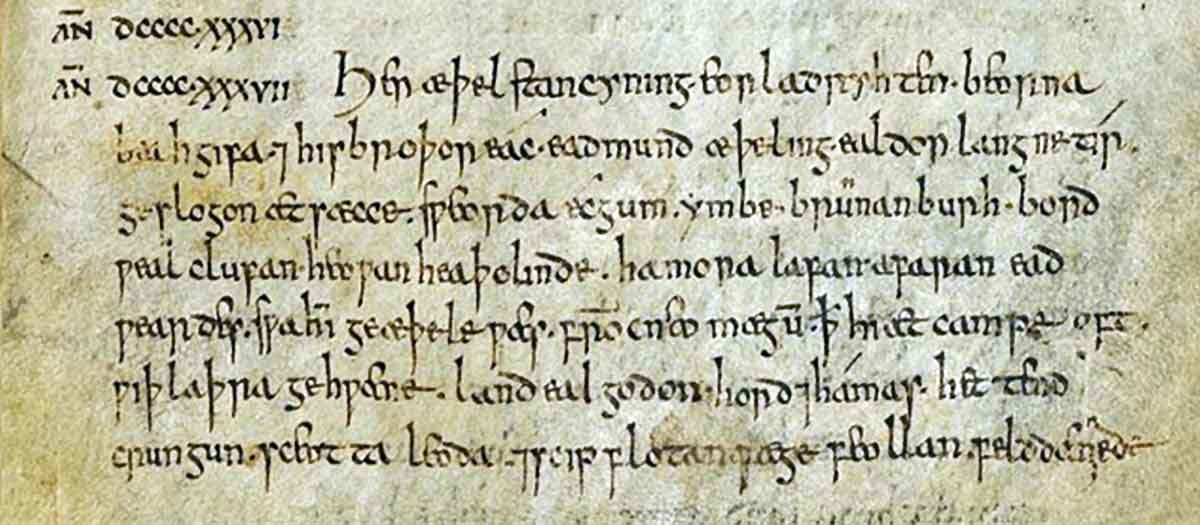 AN̄ DCCCC·XXXVI
AN̄ DCCCC·XXXVII Her æþelstan cyning· eorla dryhten· beorna
beahgifa· ⁊ his broþor eac· eadmund æþeling· ealdor langne tir·
geslogon æt sæcce· sƿeorda ecgum· ymbe· brunanburh· bord
ƿeal clufan· heoƿan heaþolinde· hamora lafan afaran ead
ƿeardes· sƿa him geæþele ƿæs· frō cneo mægū· þ̄ hi æt campe oft·
ƿiþ laþra gehƿæne· land ealgodon· hord ⁊ hámas· hettend
crungun· sceotta leoda· ⁊ scip flotan fæge feollan· feld dænnede